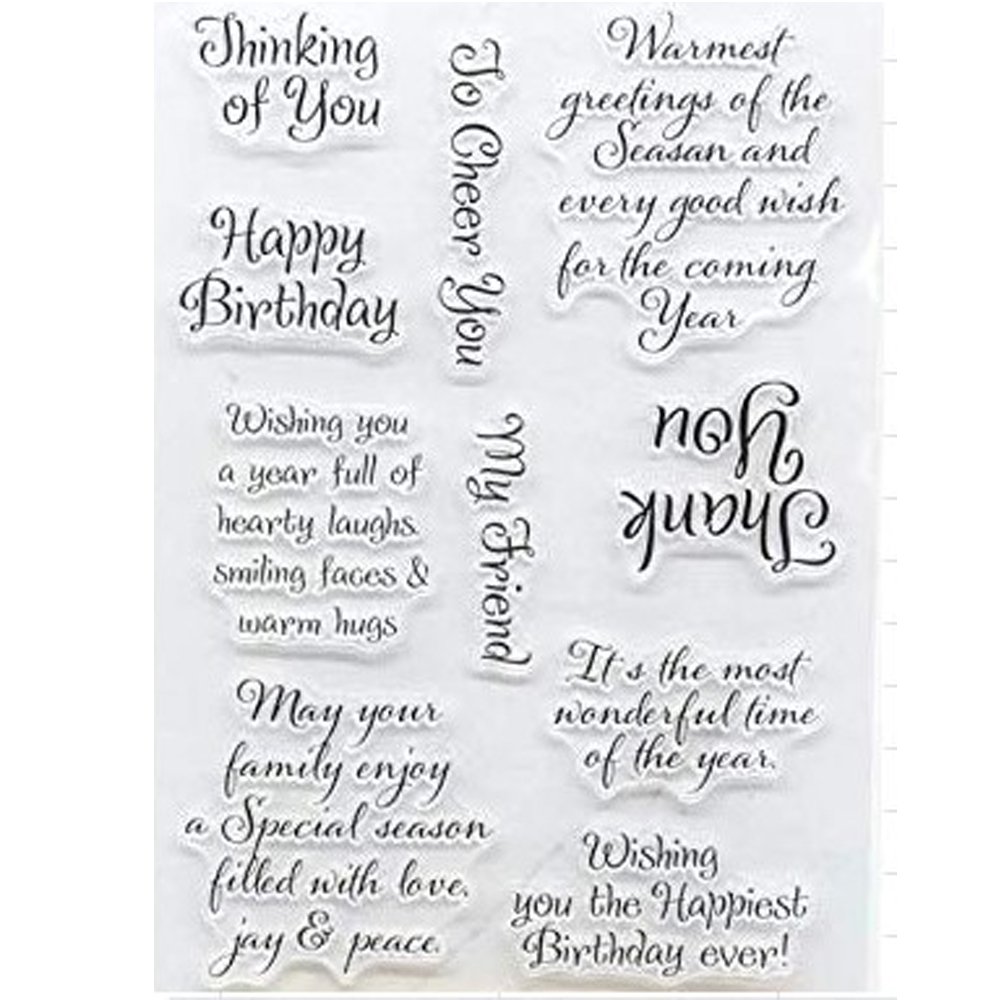 Thinking
of You
To Cheer You
Warmest
greetings of the
Seasan and
every good wish
for the coming
Year
Happy
Birthday
Thank
You
Wishing you
a year full of
hearty laughs.
smiling faces &
warm hugs
My Friend
It's the most
wonderful time
of the year.
May your
family enjoy
a Special season
filled with love,
jay & peace.
Wishing
you the Happiest
Birthday ever!